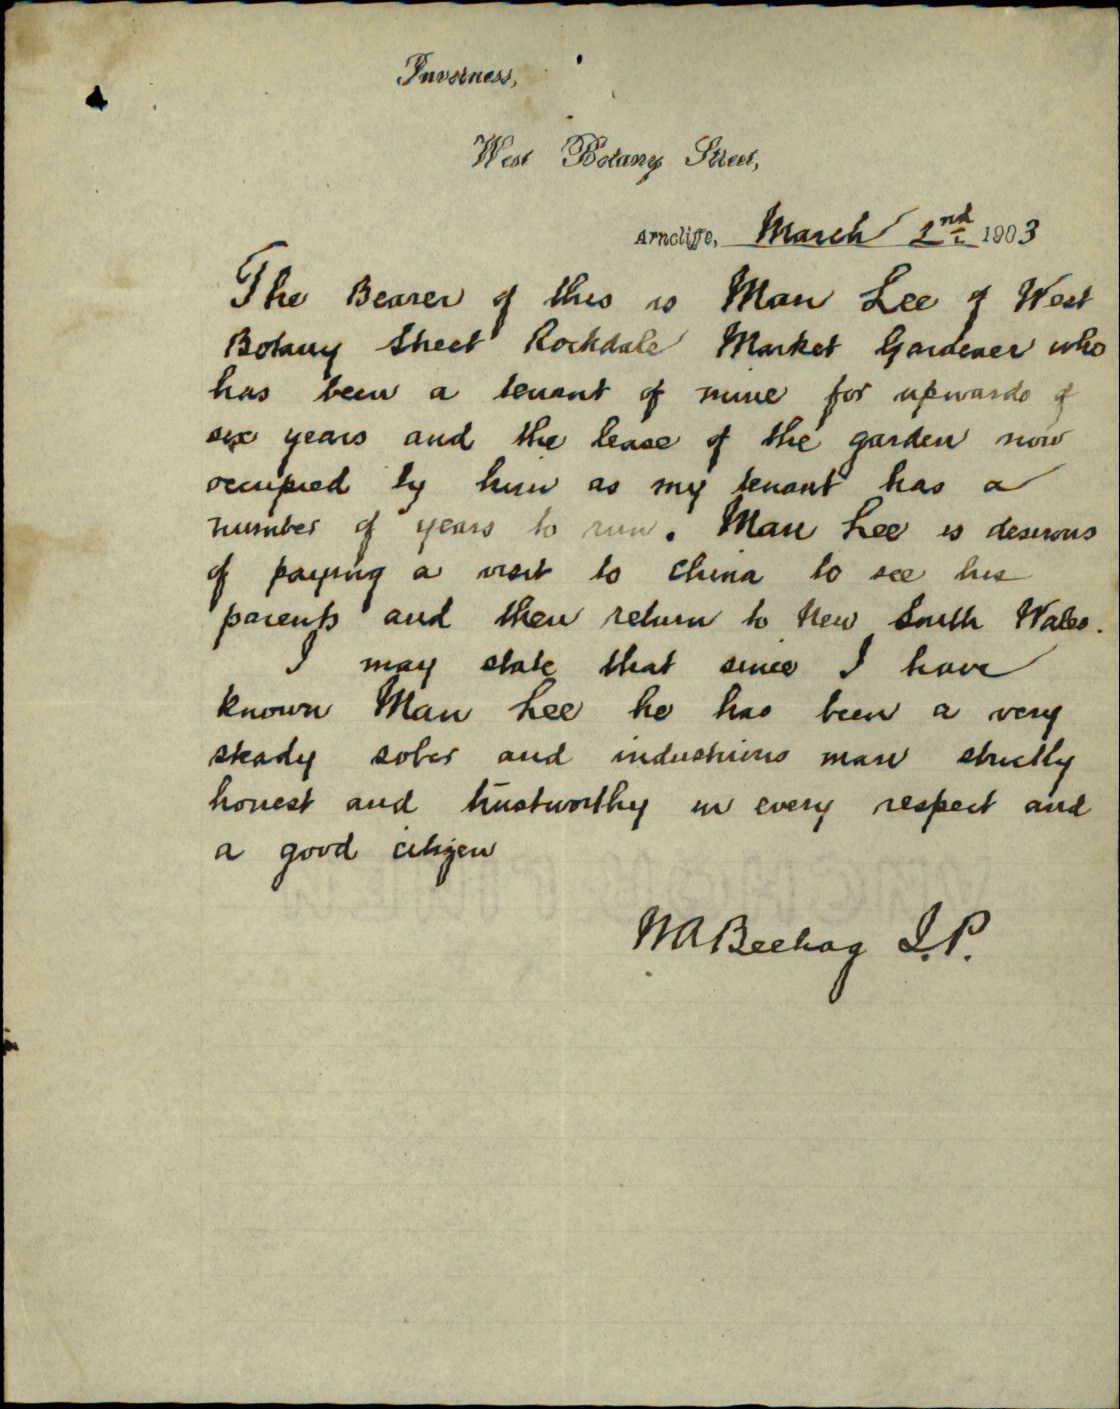 Inverness,
West Botany Street,
Arncliffe, March 2nd 1903
The Bearer of this is Man Lee of West
Botany Street Rockdale Market Gardener who
has been a tenant of mine for upwards of
six years and the lease of the garden now
occupied by him as my tenant has a
number of years to run. Man Lee is desirous
of paying a visit to China to see his
parents and then return to New South Wales.
I may state that since I have
known Man Lee he has been a very
steady sober and industrious man strictly
honest and trustworthy in every respect and
a good citizen
W A Beehag J.P.